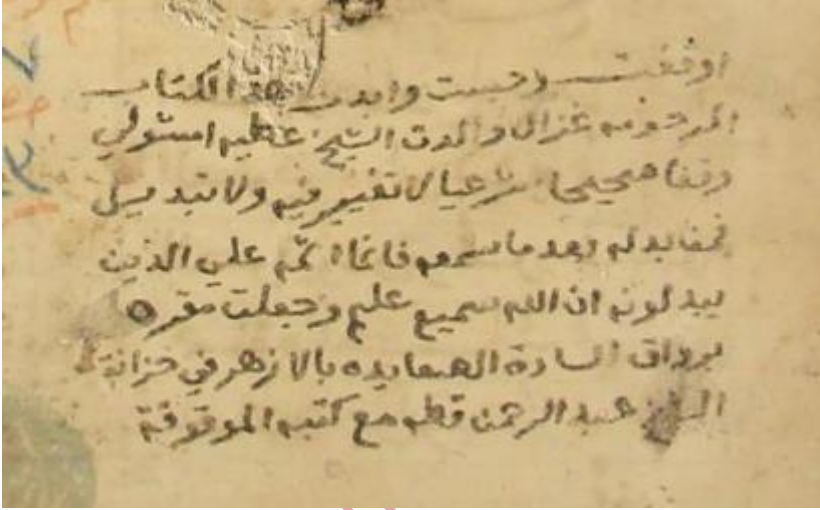 اوقفت وحبست وابدت هذ الكتاب
المرحومه غزال والدت الشيخ عطيه استولي
وقفا صحيحا شرعيا لا تغيير فيه ولا تبديل
فمن بدله بعد ما سمعه فانما اثمه علي الذين
يبدلونه ان الله سميع عليم وجعلت مقره
برواق السادة الصعايده بالازهر في خزانة
عبد الرحمن قطه مع كتبه الموقوفة